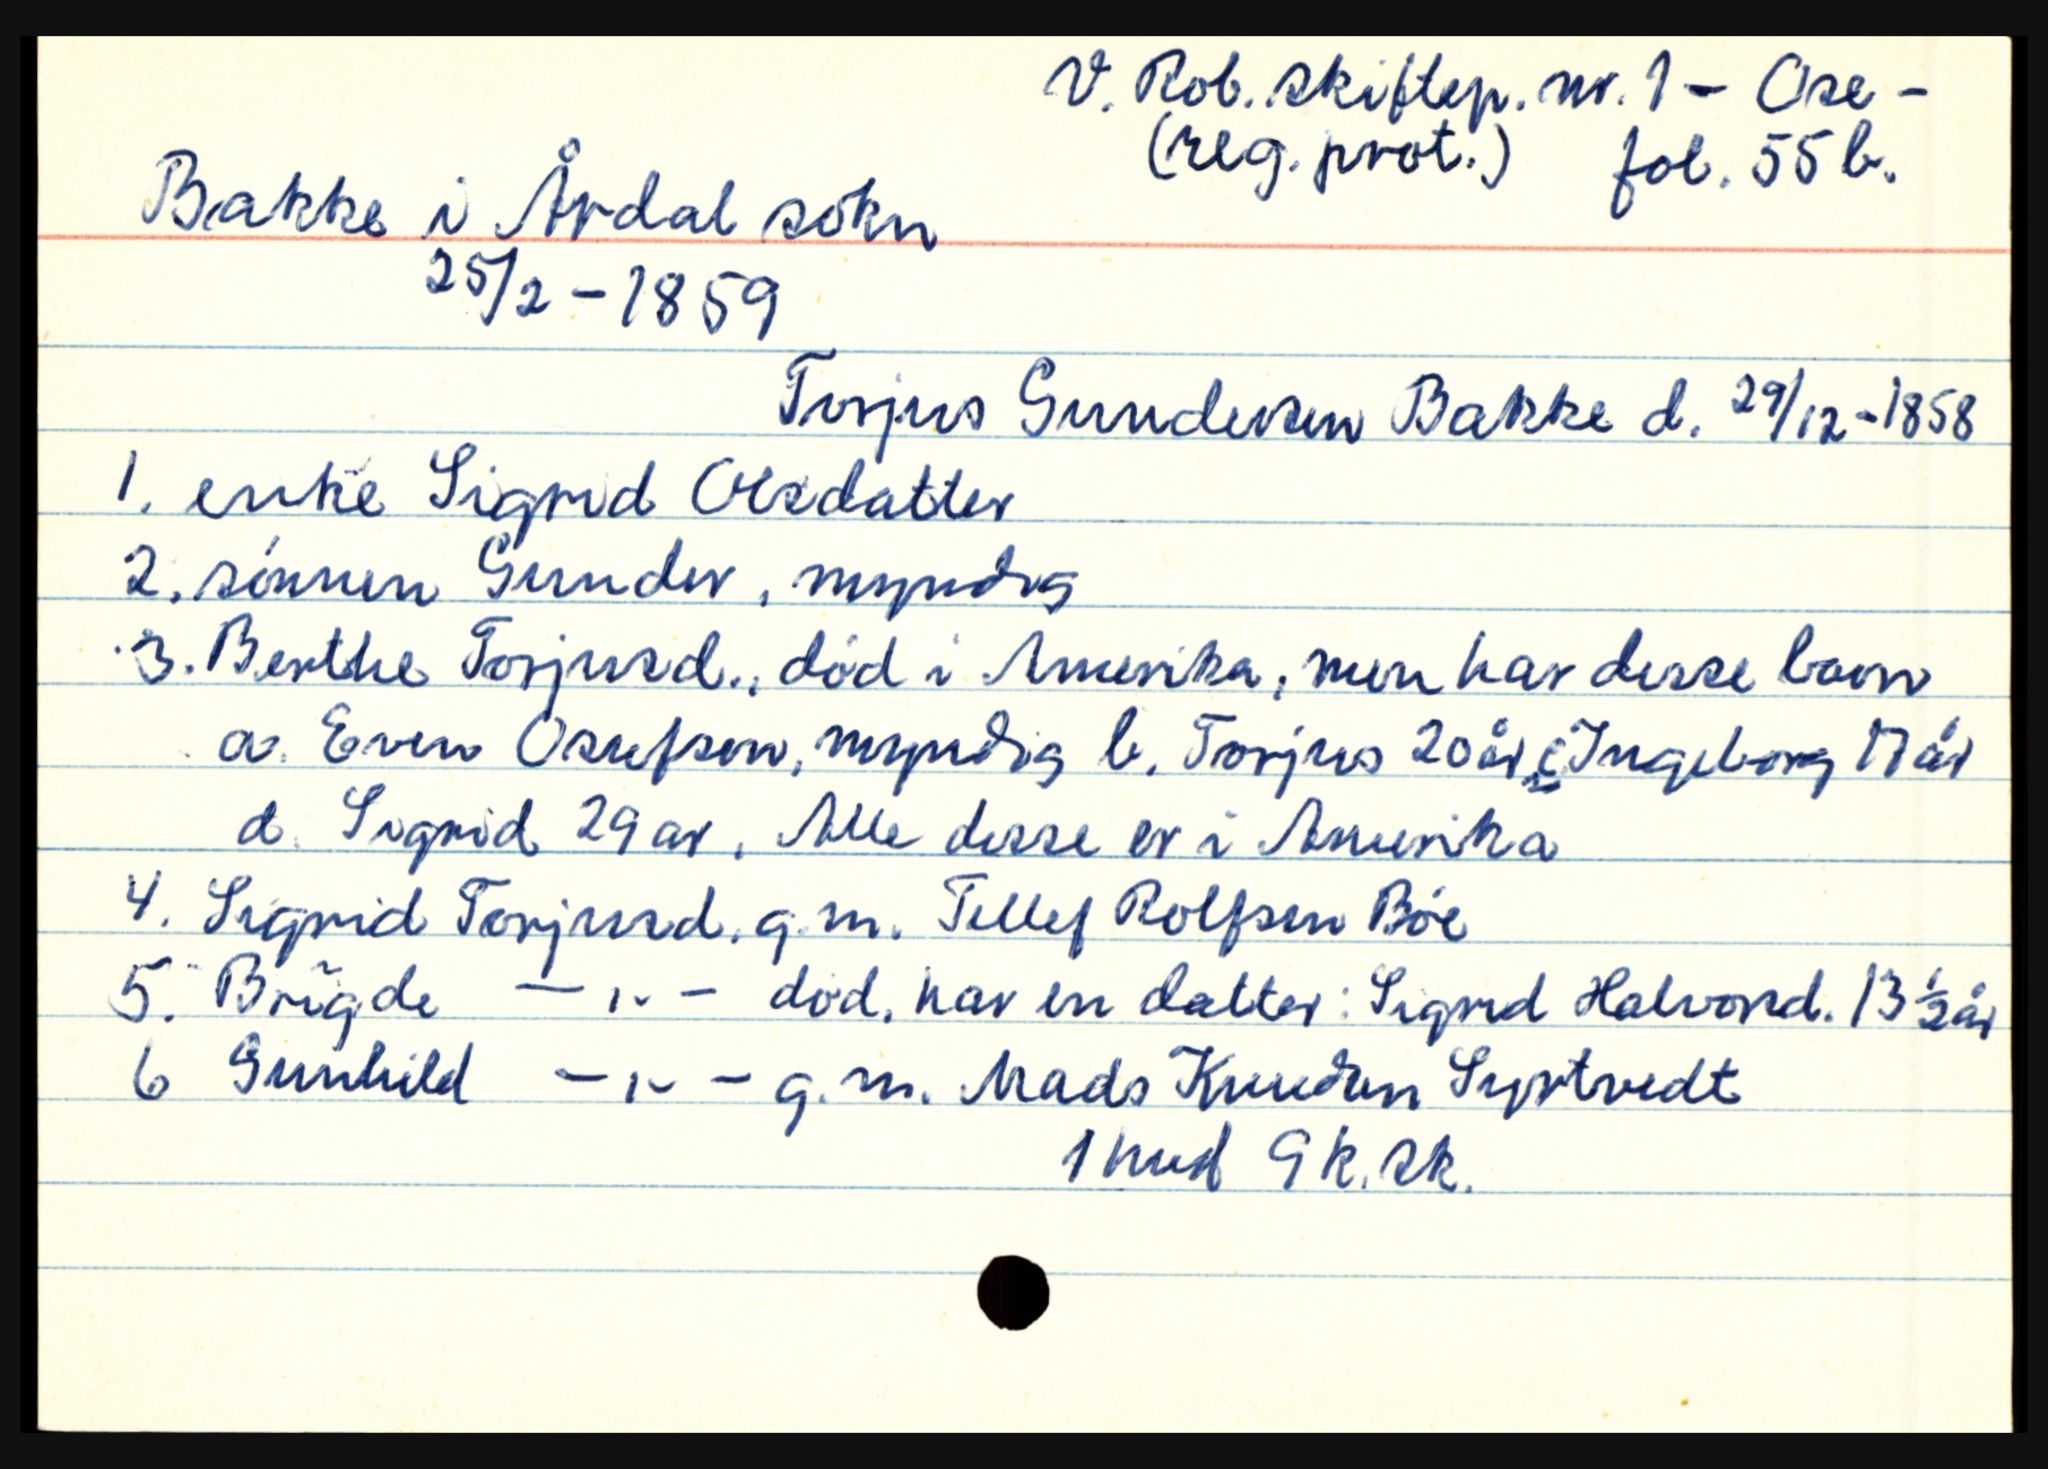 V. Rob. skiftep. nr. 1 - Ose -
(reg. prot.) fol. 55 b.
Bakke i Årdal sokn
25/2 - 1859
Torjus Gundersen Bakke d. 29/12 - 1858
1. enke Sigrid Olsdatter
2. sónnen Gunder, myndig
3. Berthe Torjusd., død i Amerika, men har disse barn
a. Even Osufsen, myndig b. Torjus 20 år c Ingeborg 17 år
d. Sigrid 29 ar, Alle disse er i Amerika
4. Sigrid Torjusd. g.m. Tellef Rolfsen Bóe
5. Brigde — " — død, har en datter: Sigrid Halvorsd. 13 ½ år
6 Gunhild — " — g.m. Mads Knudsen Syrtvedt
1 hud 9 k. sk.